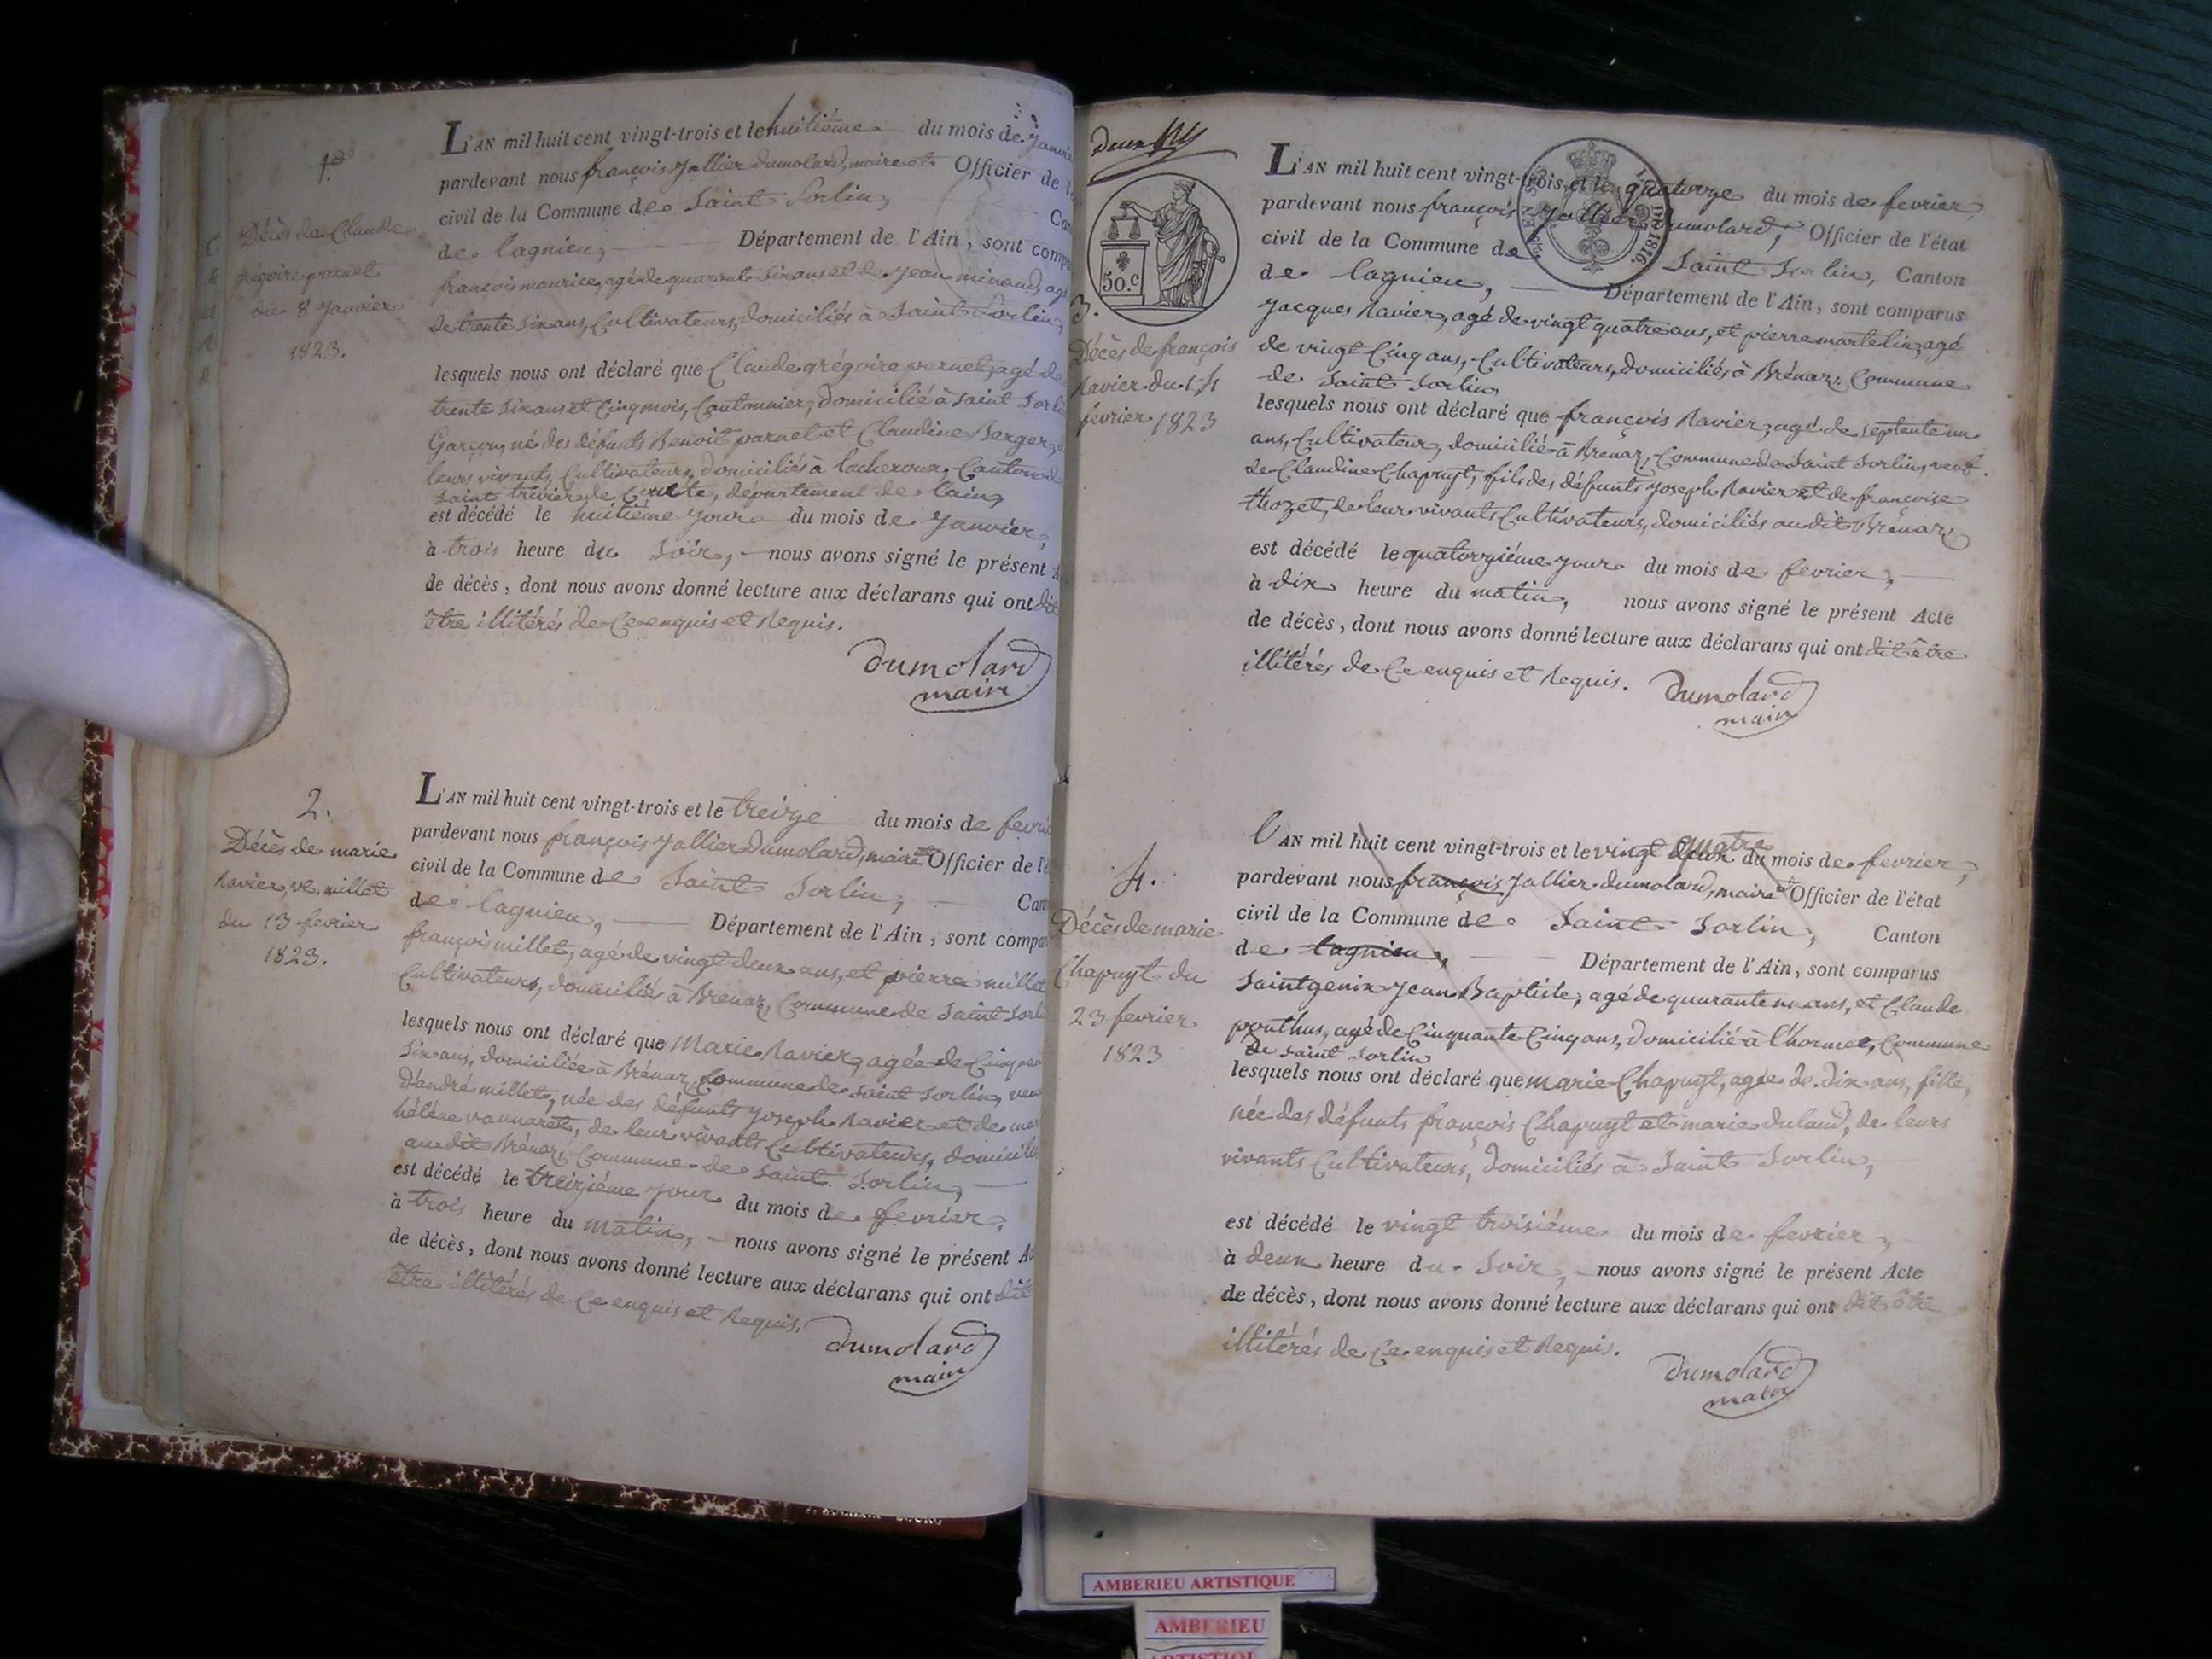 1er
Décès de Claude
grégoire parnet
du 8 janvier
1823.
L'AN mil huit cent vingt-trois et le huitième du mois de janvie
pardevant nous françois jallier dumolard, maire et Officier de l
civil de la Commune de Saint Sorlin, Can
de lagnieu, Département de l'Ain, sont comp
françois maurice, agé de quarante six ans et de jean minand, agé
de trente six ans, Cultivateurs, domiciliés à Saint Sorlin,
lesquels nous ont déclaré que Claude grégoire parnet, agé de
trente six ans et Cinq mois, Cantonnier, domicilié à Saint Sorli
Garçon, né des défunts Benoit parnet et Claudine Berger,
leurs vivants, Cultivateurs, domiciliés à lacheroux, Canton d
Saint trivier de Courte, département de lain,
est décédé le huitième jour du mois de janvier,
à trois heure du Soir, nous avons signé le présent A
de décès, dont nous avons donné lecture aux déclarans qui ont dit
être illitérés de Ce enquis et Requis.
dumolard
maire
2.
Décès de marie
Ravier, ve. millet
du 13 fevrier
1823.
L'AN mil huit cent vingt-trois et le treize du mois de fevrie
pardevant nous françois jallier dumolard, maire et Officier de l'é
civil de la Commune de Saint Sorlin, Cant
de lagnieu, Département de l'Ain, sont compar
françois millet, agé de vingt deux ans, et pierre millet
Cultivateurs, domiciliés à Brénaz, Commune de Saint Sorli
lesquels nous ont déclaré que Marie Ravier, agée de Cinquan
Six ans, domiciliée à Brénaz, Commune de Saint Sorlin, veu
d'andré millet, née des défunts joseph Ravier et de mar
héléne vannaret, de leur vivants Cultivateurs, domicilié
au dit Brénaz, Commune de Saint Sorlin,
est décédé le treizième jour du mois de fevrier,
à trois heure du matin, nous avons signé le présent Ac
de décès, dont nous avons donné lecture aux déclarans qui ont dit
être illitérés de Ce enquis et Requis.
dumolard
maire
50.c
DE 1816.
3.
Décès de françois
Ravier du 14
fevrier 1823
L'AN mil huit cent vingt-trois et le quatorze du mois de fevrier,
pardevant nous françois jallier dumolard, Officier de l'état
civil de la Commune de Saint Sorlin, Canton
de lagnieu, Département de l'Ain, sont comparus
jacques Ravier, agé de vingt quatre ans, et pierre martelin, agé
de vingt Cinq ans, Cultivateurs, domiciliés à Brénaz, Commune
de Saint Sorlin,
lesquels nous ont déclaré que françois Ravier, agé de septente un
ans, Cultivateur, domicilié à Brenaz, Commune de Saint Sorlin, veuf
de Claudine Chapuyt, fils des défunts joseph Ravier et de françoise
thozet, de leur vivants Cultivateurs, domiciliés au dit Brénaz
est décédé le quatorzième jour du mois de fevrier,
à dix heure du matin, nous avons signé le présent Acte
de décès, dont nous avons donné lecture aux déclarans qui ont dit être
illitérés de Ce enquis et Requis.
dumolard
maire
4.
Décès de marie
Chapuyt du
23 fevrier
1823
L'AN mil huit cent vingt-trois et le vingt quatre du mois de fevrier,
pardevant nous françois jallier dumolard, maire et Officier de l'état
civil de la Commune de Saint Sorlin, Canton
de lagnieu, Département de l'Ain, sont comparus
Saintgenix jean Baptiste, agé de quarante un ans, et Claude
ponthus, agé de Cinquante Cinq ans, domicilié à l'hormet, Commune
de Saint Sorlin
lesquels nous ont déclaré que marie Chapuyt, agée de dix ans, fille,
née des défunts françois Chapuyt et marie duland, de leurs
vivants Cultivateurs, domiciliés à Saint Sorlin,
est décédé le vingt troisiéme du mois de fevrier,
à deux heure du Soir, nous avons signé le présent Acte
de décès, dont nous avons donné lecture aux déclarans qui ont dit être
illitérés de Ce enquis et Requis.
dumolard
maire
AMBERIEU ARTISTIQUE
AMBERIEU
ARTISTIQUE